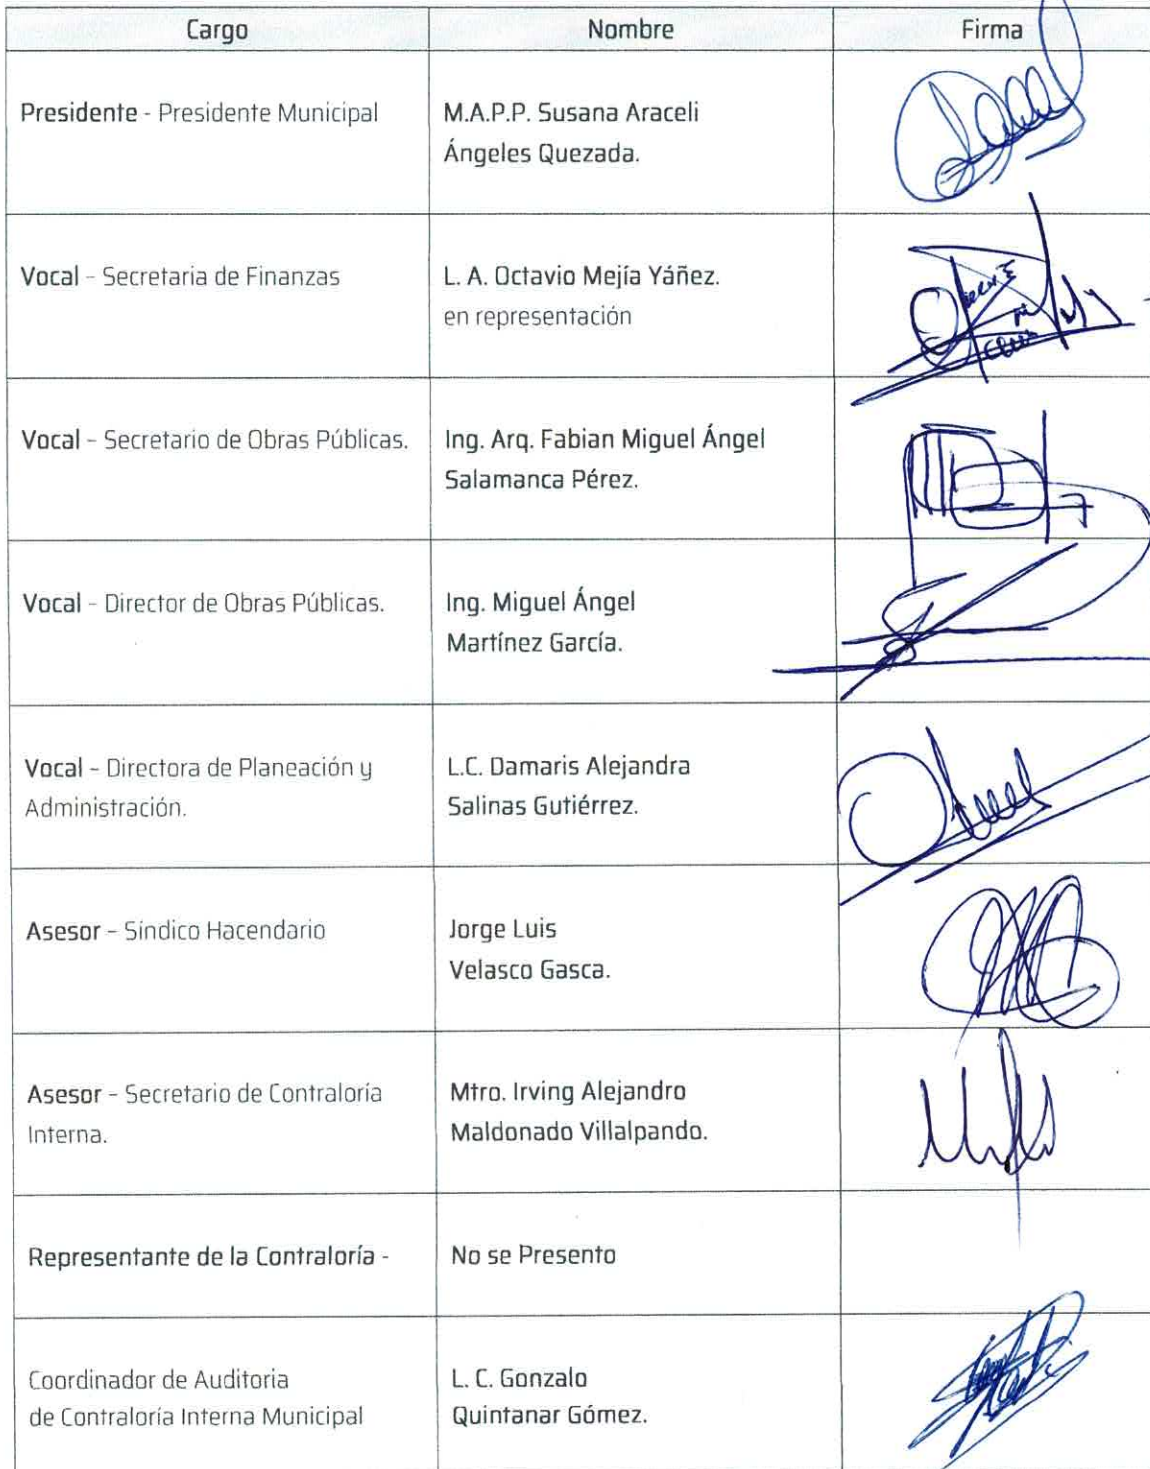 Cargo Nombre Firma
Presidente - Presidente Municipal
M.A.P.P. Susana Araceli
Ángeles Quezada.
Vocal – Secretaria de Finanzas
L. A. Octavio Mejía Yáñez.
en representación
Vocal – Secretario de Obras Públicas.
Ing. Arq. Fabian Miguel Ángel
Salamanca Pérez.
Vocal – Director de Obras Públicas.
Ing. Miguel Ángel
Martínez García.
Vocal – Directora de Planeación y
Administración.
L.C. Damaris Alejandra
Salinas Gutiérrez.
Asesor – Síndico Hacendario
Jorge Luis
Velasco Gasca.
Asesor – Secretario de Contraloría
Interna.
Mtro. Irving Alejandro
Maldonado Villalpando.
Representante de la Contraloría -
No se Presento
Coordinador de Auditoria
de Contraloría Interna Municipal
L. C. Gonzalo
Quintanar Gómez.